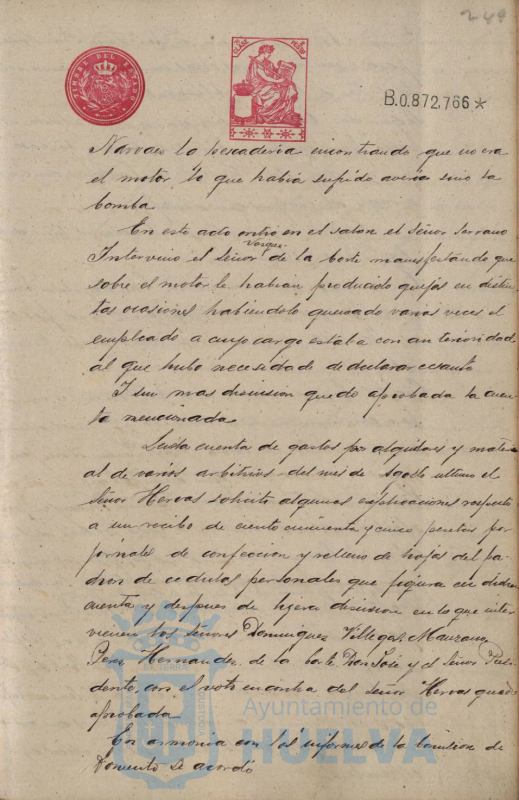 249
TIMBRE DEL ESTADO
B.0.872,766*
Narvaez la pescaderia encontrando que no era
el motor lo que habia sufrido averia sino la
bomba
En este acto entro en el salon el Señor Serrano
Vazquez
Intervino el Señor de la Corte manifestando que
sobre el motor le habian producido quejas en distin-
tas ocasiones habiendole quemado varias veces el
empleado a cuyo cargo estaba con anterioridad
al que hubo necesidad de declarar cesante
I sin mas discusion quedo aprobada la cuen-
ta mencionada
Leida cuenta de gastos por alquileres y materi-
al de varios arbitrios del mes de Agosto ultimo el
Señor Hervas solicito algunas explicaciones respecto
a un recibo de ciento cincuenta y cinco pesetas por
jornales de confeccion y relleno de hojas del pa-
dron de cedulas personales que figura en dicha
cuenta y despues de ligera discusion en lo que inter-
vienen los Señores Dominguez Villegas Manzano
Perez Hernandez de la Corte Don José y el Señor Presi-
dente, con el voto en contra del Señor Hervas quedo
aprobada
En armonia con los informes de la Comision de
Fomento se acordó
Ayuntamiento de
HUELVA